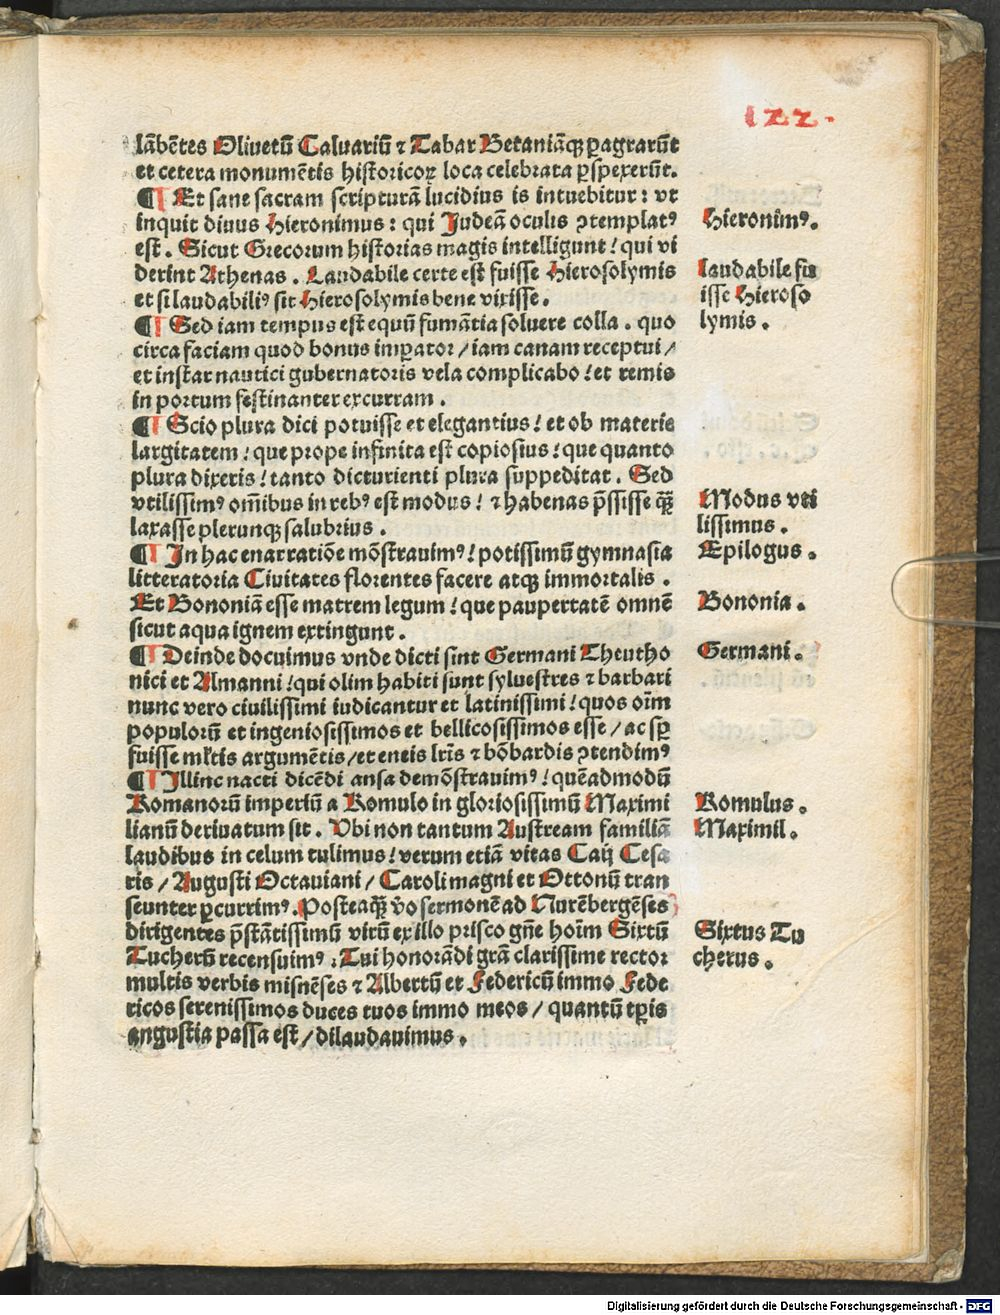 122.
lābētes Oliuetū Caluariū ⁊ Tabar Betaniāqꝫ ꝑagrarūt
et cetera monumētis historicoꝝ loca celebrata ꝑspexerūt.
¶ Et sane sacram scripturā lucidius is intuebitur: vt
inquit diuus Hieronimus: qui Judeā oculis ꝯtemplatꝰ
est. Sicut Grecorum historias magis intelligunt! qui vi
derint Athenas. Laudabile certe est fuisse Hierosolymis
et si laudabiliꝰ sit Hierosolymis bene vixisse.
¶ Sed iam tempus est equū fumātia soluere colla. quo
circa faciam quod bonus imꝑator/iam canam receptui/
et instar nautici gubernatoris vela complicabo! et remis
in portum festinanter excurram.
¶ Scio plura dici potuisse et elegantius! et ob materie
largitatem! que prope infinita est copiosius! que quanto
plura dixeris! tanto dicturienti plura suppeditat. Sed
vtilissimꝰ om̄ibus in rebꝰ est modus! ⁊ habenas p̄ssisse qꝫ̄
laxasse plerunqꝫ salubrius.
¶ In hac enarratiōe mōstrauimꝰ! potissimū gymnasia
litteratoria Ciuitates florentes facere atqꝫ immortalis.
Et Bononiā esse matrem legum! que paupertatē omnē
sicut aqua ignem extingunt.
¶ Deinde docuimus vnde dicti sint Germani Theutho
nici et Almanni! qui olim habiti sunt syluestres ⁊ barbari
nunc vero ciuilissimi iudicantur et latinissimi! quos oīm
populorū et ingeniosissimos et bellicosissimos esse/ac sꝑ
fuisse mltis argumētis/et eneis lrīs ⁊ bōbardis ꝯtendimꝰ
¶ Illinc nacti dicēdi ansa demōstrauimꝰ! quēadmodū
Romanorū imperiū a Romulo in gloriosissimū Maximi
lianū deriuatum sit. Vbi non tantum Austream familiā
laudibus in celum tulimus! verum etiā vitas Caij Cesa
ris/Augusti Octauiani/Caroli magni et Ottonū tran
seunter ꝑcurrimꝰ. Posteaqꝫ̄ v̄o sermonē ad Nurēbergēses
dirigentes p̄stātissimū virū ex illo prisco gn̄e hoīm Sixtū
Tucherū recensuimꝰ: Tui honorādi grā clarissime rector
multis verbis misnēses ⁊ Albertū et Federicū immo Fede
ricos serenissimos duces tuos immo meos/quantū tꝑis
angustia passa est/dilaudauimus.
Hieronimꝰ.
laudabile fu
isse Hieroso
lymis.
Modus vti
lissimus.
Epilogus.
Bononia.
Germani.
Romulus.
Maximil.
Sixtus Tu
cherus.
Digitalisierung gefördert durch die Deutsche Forschungsgemeinschaft - DFG